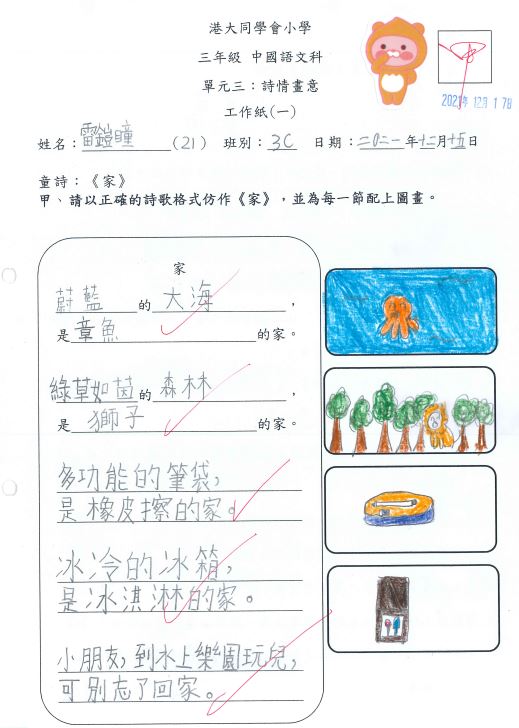 港大同學會小學
三年級 中國語文科
單元三：詩情畫意
工作紙(一)
2021年 12月 17日
姓名：雷鎧瞳 (21) 班別：3C 日期：二〇二一年十二月十五日
童詩：《家》
甲、請以正確的詩歌格式仿作《家》，並為每一節配上圖畫。
家
蔚藍的大海，
是章魚的家。
綠草如茵的森林，
是獅子的家。
多功能的筆袋，
是橡皮擦的家。
冰冷的冰箱，
是冰淇淋的家。
小朋友，到水上樂園玩兒，
可別忘了回家。